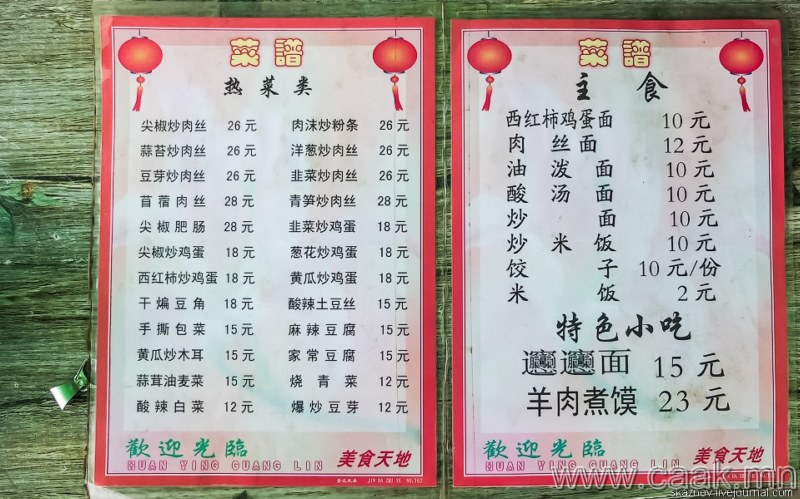 菜譜
热菜类
尖椒炒肉丝 26元
蒜苔炒肉丝 26元
豆芽炒肉丝 26元
苜蓿肉丝 28元
尖椒肥肠 28元
尖椒炒鸡蛋 18元
西红柿炒鸡蛋 18元
干煸豆角 18元
手撕包菜 15元
黄瓜炒木耳 15元
蒜茸油麦菜 15元
酸辣白菜 12元
肉沫炒粉条 26元
洋葱炒肉丝 26元
韭菜炒肉丝 26元
青笋炒肉丝 28元
韭菜炒鸡蛋 18元
葱花炒鸡蛋 18元
黄瓜炒鸡蛋 18元
酸辣土豆丝 15元
麻辣豆腐 15元
家常豆腐 15元
烧青菜 12元
爆炒豆芽 12元
歡迎光臨
HUAN YING GUANG LIN
美食天地
菜譜
主食
西红柿鸡蛋面 10元
肉丝面 12元
油泼面 10元
酸汤面 10元
炒面 10元
炒米饭 10元
饺子 10元/份
米饭 2元
特色小吃
𰻞𰻞面 15元
羊肉煮馍 23元
歡迎光臨
HUAN YING GUANG LIN
美食天地
www.caak.mn
skaznov.livejournal.com